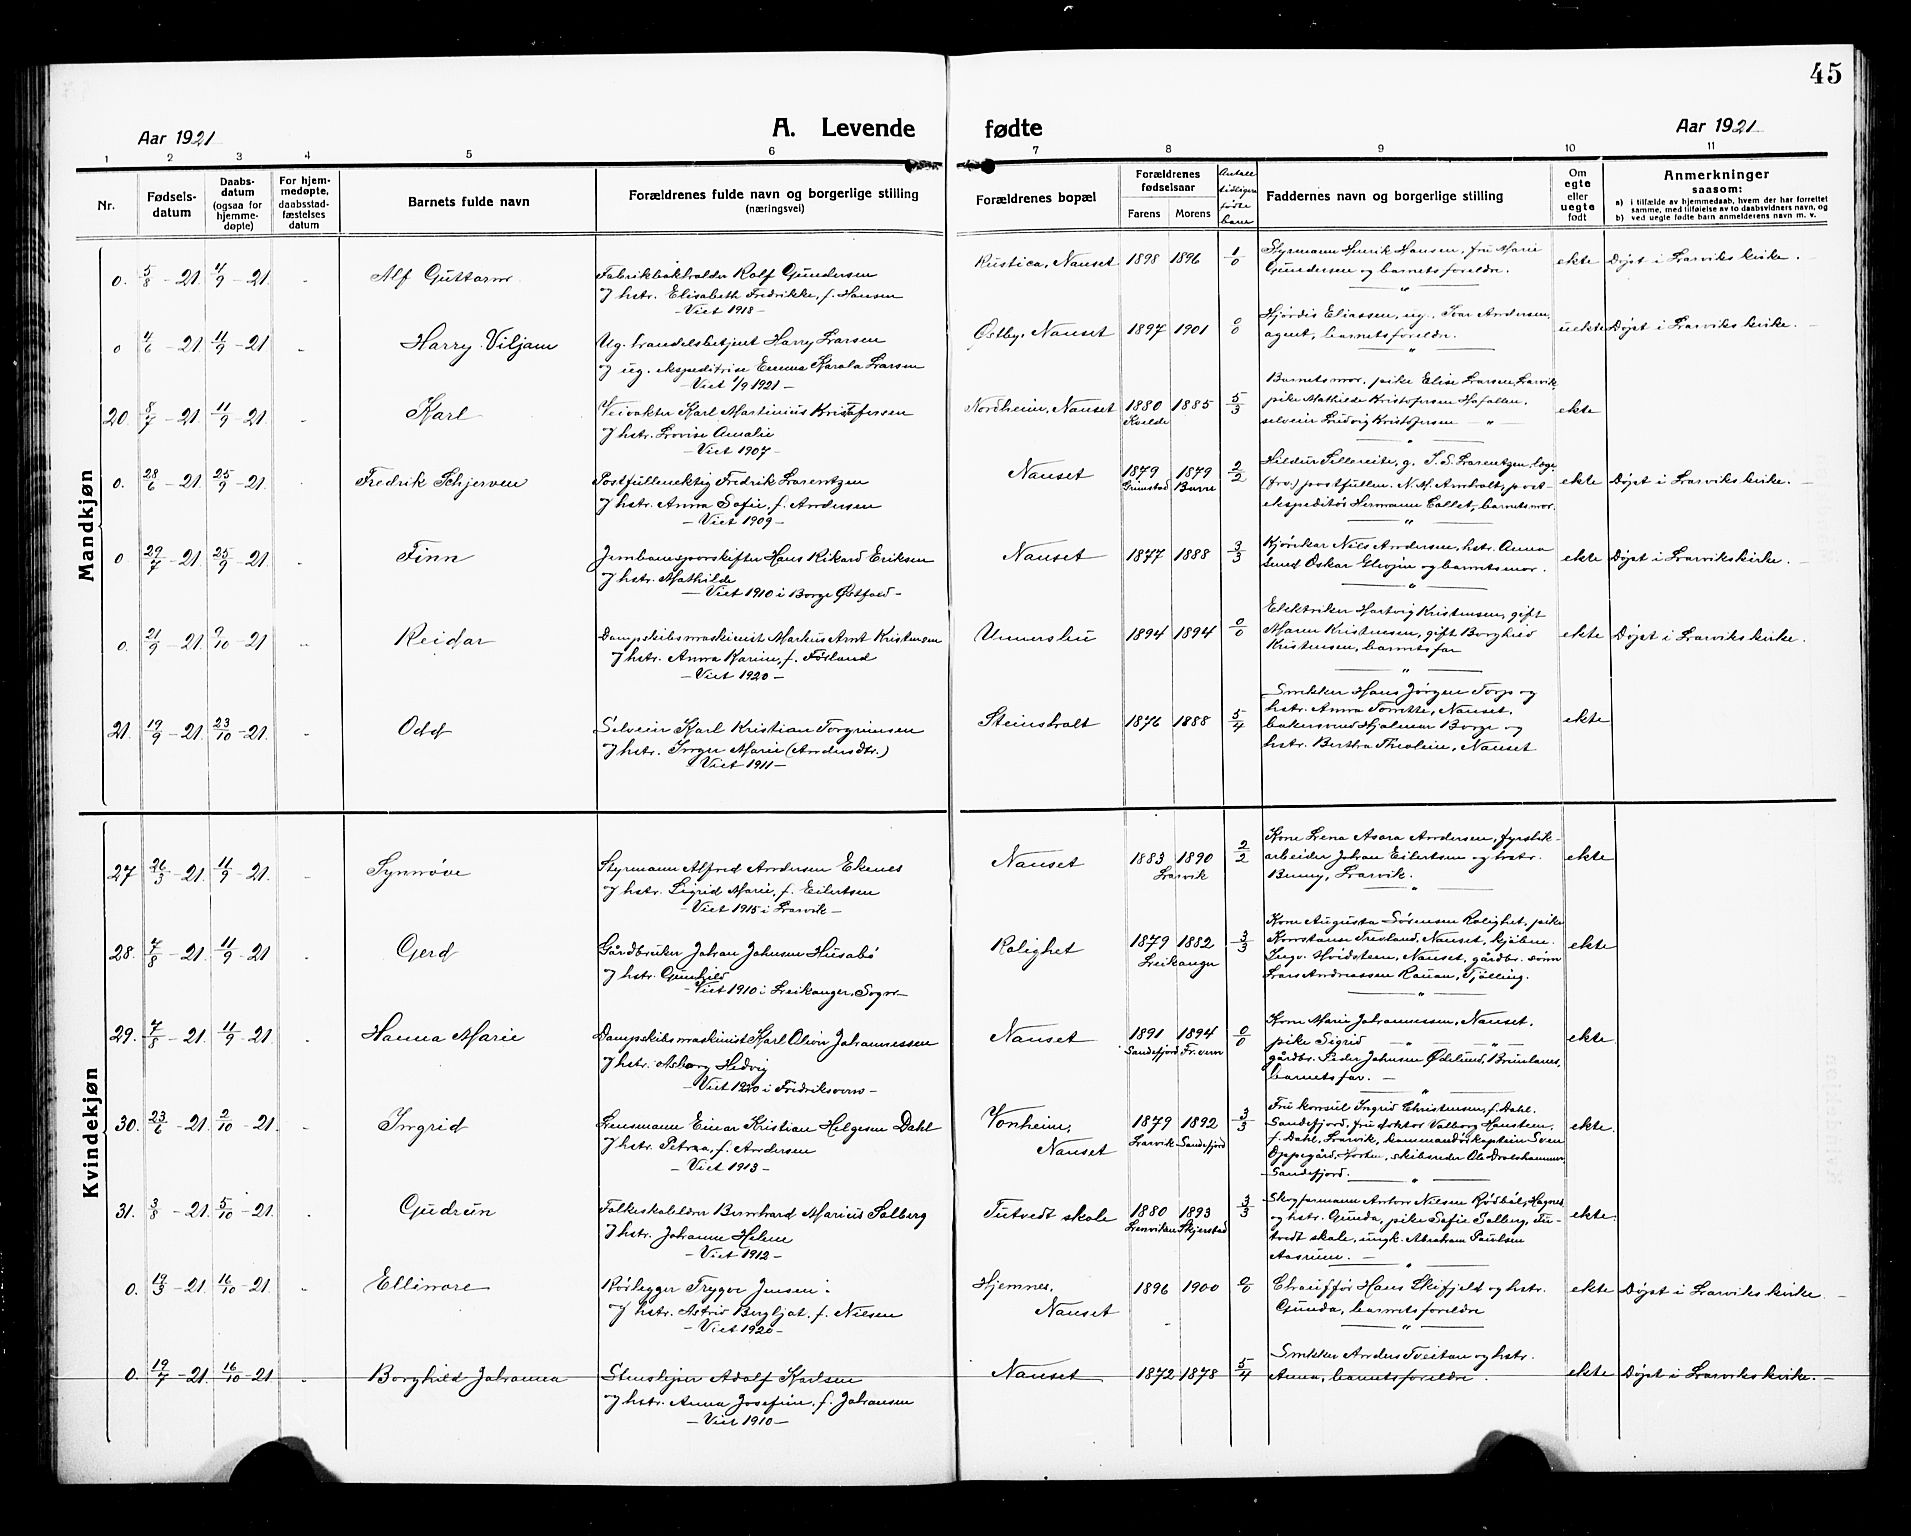 45
Aar 1921
A. Levende
fødte
Aar 1921
1 2 3 4 5 6 7 8 9 10 11
Nr.
Fødsels-
datum
Daabs-
datum
(ogsaa for
hjemme-
døpte)
For hjem-
medøpte,
daabsstad-
fæstelses
datum
Barnets fulde navn
Forældrenes fulde navn og borgerlige stilling
(næringsvei)
Forældrenes bopæl
Forældrenes
fødselsaar
Farens Morens
Antall
tidligere
fødte
barn
Faddernes navn og borgerlige stilling
Om
egte
eller
uegte
født
Anmerkninger
saasom:
a) i tilfælde av hjemmedaab, hvem der har forrettet
samme, med tilføielse av to daabsvidners navn, og
b) ved uegte fødte barn anmelderens navn m. v.
Mandkjøn
0. 5/8 - 21. 4/9 - 21. Alf Guttorm. Fabrikbokholder Rolf Gundersen
og hstr. Elisabeth Fredrikke, f. Hansen
- Viet 1918 -
Rustica, Nanset 1898 1896 1/0 Styrmann Henrik Hansen, fru Marie
Gundersen og barnets foreldre. ekte Døpt i Larviks kirke.
0 4/6 - 21. 11/9 - 21 Harry Viljam Ug. handelsbetjent Harry Larsen
og ug. ekspeditrise Emma Karola Larsen
- Viet 1/9 1921 -
Østby, Nanset 1897 1901 0/0 Hjørdis Eliassen, ug. Ivar Andersen,
agent, barnets foreldre. uekte Døpt i Larviks kirke.
20. 8/7 - 21. 11/9 - 21. Karl Veivokter Karl Martinius Kristofersen
og hstr. Lovise Amalie
- Viet 1907 -
Nordheim, Nanset 1880 1885 5/3
Kvelde
Barnets mor, pike Elise Larsen, Larvik
pike Mathilde Kristofersen
selveier Ludvig Kristofersen - " - ekte
0. 28/6 - 21. 25/9 - 21. Fredrik Schjerven Postfullmektig Fredrik Lorentzen
og hstr. Anna Sofie, f. Andersen
- Viet 1909 -
Nanset 1879 1879 2/2
Grimstad Borre
Hildur g. I. S. Lorentzen, læge
(frv.) postfullm. N. M. Arnholt, post-
ekspeditør Hermann Collet, barnets mor. ekte Døpt i Larviks kirke.
0 29/7 - 21. 25/9 - 21 Finn Jernbaneporskifter Hans Rikard Eriksen
og hstr. Mathilde
- Viet 1910 i Borge Østfold -
Nanset 1877 1888 3/3 Kjørekar Niels Andersen, hstr. Anna
Smed Oskar og barnets mor. ekte Døpt i Larviks kirke.
0. 21/9 - 21. 9/10 - 21 Reidar Dampskibsmaskinist Markus Arnt Kristensen
og hstr. Anna Karine, f. Førland
- Viet 1920 -
Unnerslii 1894 1894 0/0 Elektriker Hartvig Kristensen, gift
Maren Kristensen, gift Borghild
Kristensen, barnets far ekte Døpt i Larviks kirke.
21. 19/9 - 21. 23/10 - 21. Odd Selveier Karl Kristian Torgrimsen
og hstr. Inger Marie (Andersdtr.)
- Viet 1911 -
Steinsholt 1876 1888 5/4 Snekker Hans Jørgen Torp og
hstr. Anna Tomitte, Nanset,
bakersvend Hjalmar Borge og
hstr. Bertha Theoline, Nanset ekte
Kvindekjøn
27 26/3 - 21. 11/9 - 21. Synnøve Styrmann Alfred Andersen Ekenes
og hstr. Sigrid Marie, f. Eilertsen
- Viet 1915 i Larvik -
Nanset 1883 1890 2/2
Larvik
Kone Lena Asora Andersen, fyrstik-
arbeider Johan Eilertsen og hstr.
Benny, Larvik. ekte
28. 7/8 - 21. 11/9 - 21 Gerd Gårdbruker Johan Johnsen Husabø
og hstr. Gunhild
- Viet 1910 i Leikanger, Sogn -
Rolighet 1879 1882 3/3
Leikanger
Kone Augusta Sørensen Rolighet, pike
Konstanse Treoland, Nanset, kjøbm.
Ingv. Hvidsteen, Nanset, gårdbr. sønn
Lars Andreassen Rauan, Tjølling. ekte
29. 7/8 - 21. 11/9 - 21. Hanna Marie Dampskibsmaskinist Karl Olion Johannessen
og hstr. Asborg Hedvig
- Viet 1920 i Fredriksvern -
Nanset 1891 1894 0/0
Sandefjord Fr.vern
Kone Marie Johannessen, Nanset,
pike Sigrid - " - - " -
gårdbr. Peder Johnsen Ødelund, Brunlanes,
barnets far. - ekte
30. 23/6 - 21. 2/10 - 21. Ingrid Lensmann Einar Kristian Helgesen Dahl
og hstr. Petrea, f. Andersen
- Viet 1913 -
Vonheim,
Nanset 1879 1892 3/3
Larvik Sandefjord
Fru konsul Ingrid Christensen, f. Dahl.
Sandefjord, fru doktor Valborg Honstein,
f. Dahl, Larvik, kommandørkaptein Sven
Oppegård, Horten, skibsreder Ole Drolshammer
Sandefjord. ekte.
31. 3/8 - 21. 5/10 - 21. Gudrun Folkeskolelder Bernhard Marius Solberg
og hstr. Johanne Helene
- Viet 1912 -
Tutvedt skole 1880 1893 3/3
Lenviken Skjerstad
Skogformann Anton Nilsen Rødbøl, Hognes
og hstr. Gunda, pike Sofie Solberg, Tu-
tvedt skole, ungk. Abraham Paulsen
Aasrum. - ekte.
0. 19/3 - 21. 16/10 - 21. Ellinore Rørlegger Trygve Jensen
og hstr. Astrid Bergljot, f. Nielsen
- Viet 1920 -
Hjemnes,
Nanset 1896 1900 0/0 Chauffør Hans Skifjeld og hstr.
Gunda, barnets foreldre ekte Døpt i Larviks kirke. -
0. 19/7 - 21. 16/10 - 21. Borghild Johanna Stenslejper Adolf Karlsen
og hstr. Anna Josefine, f. Johansen
- Viet 1910 -
Nanset 1872 1878 5/4 Snekker Anders Tveitan og hstr.
Anna, barnets foreldre. ekte Døpt i Larviks kirke. -